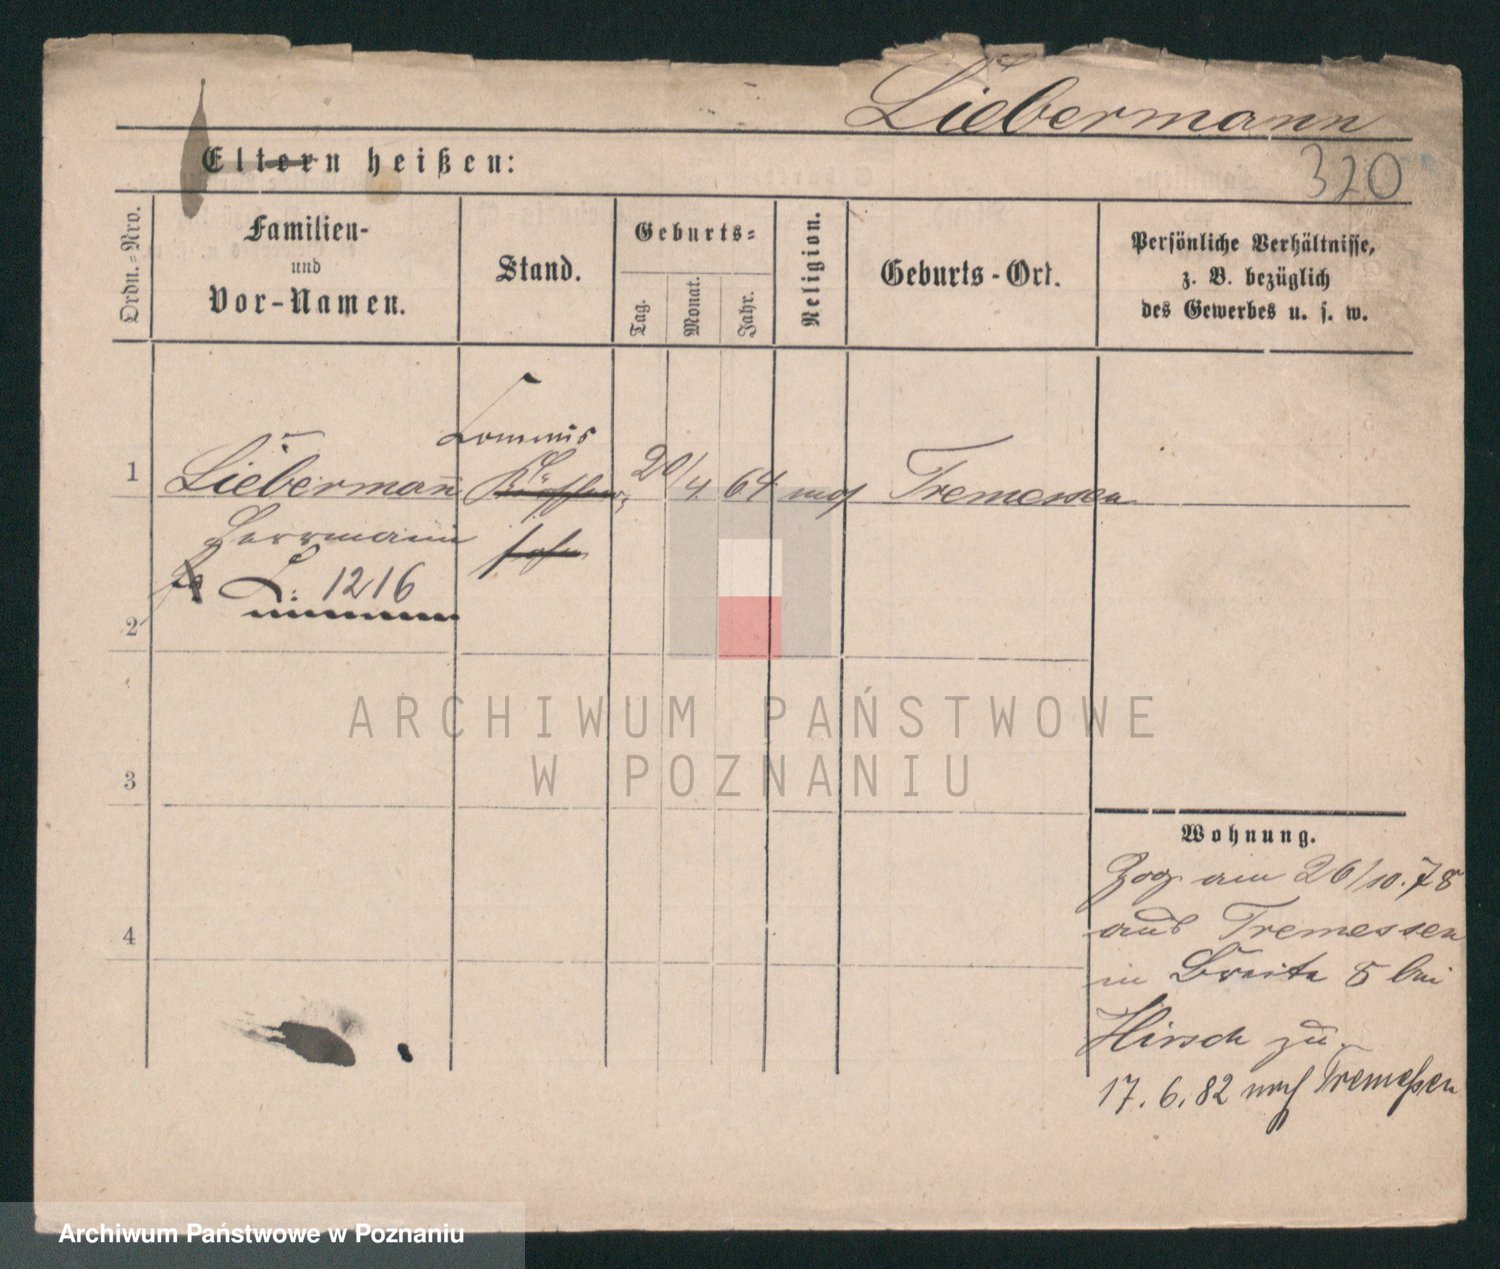 Liebermann
320
Eltern heißen:
Ordn.-Nro.
Familien-
und
Vor-Namen.
Stand.
Geburts-
Tag.
Monat.
Jahr.
Religion.
Geburts-Ort.
Persönliche Verhältnisse,
z. B. bezüglich
des Gewerbes u. s. w.
Commis
1 Liebermann 20/4 64 mos Tremessen
Herrmann
L: 1216
2
3
4
ARCHIWUM PAŃSTWOWE
W POZNANIU
Wohnung.
Zog am 26/10.78
aus Tremessen
in Breite 8 bei
Hirsch zu
17.6.82 nach Tremeßen
Archiwum Państwowe w Poznaniu